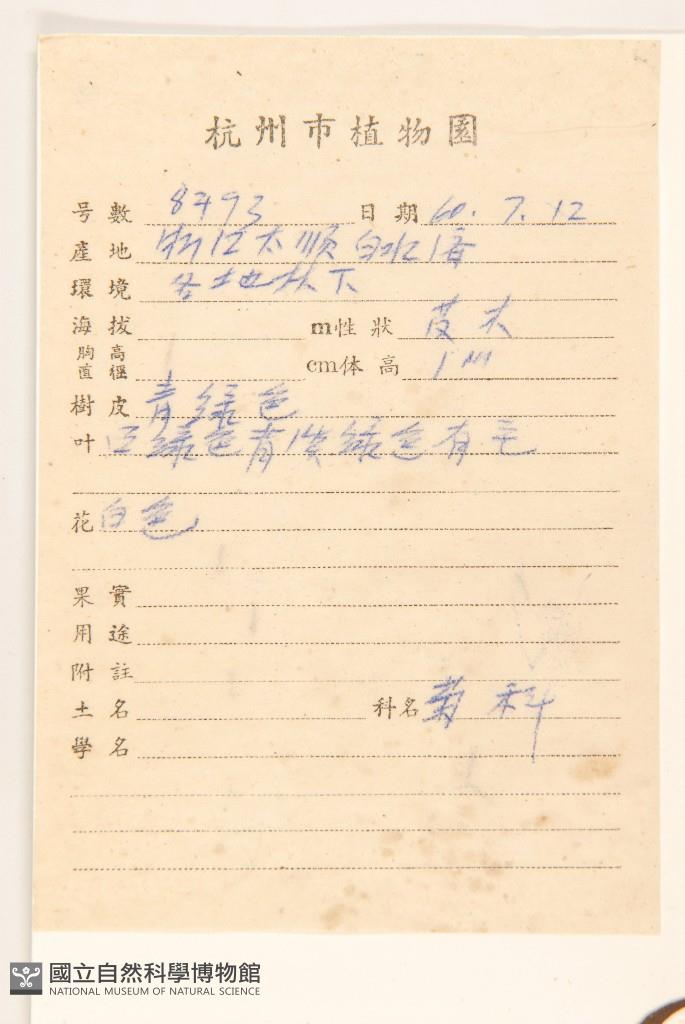 杭州市植物園
号數 8493 日期 60.7.12
產地 浙江太顺白水漈
環境 各地林下
海拔 m性狀 草本
胸高直徑 cm体高 1m
樹皮 青綠色
叶 正绿色背淡绿色有毛
花 白色
果實
用途
附註
土名 科名 菊科
學名
國立自然科學博物館
NATIONAL MUSEUM OF NATURAL SCIENCE